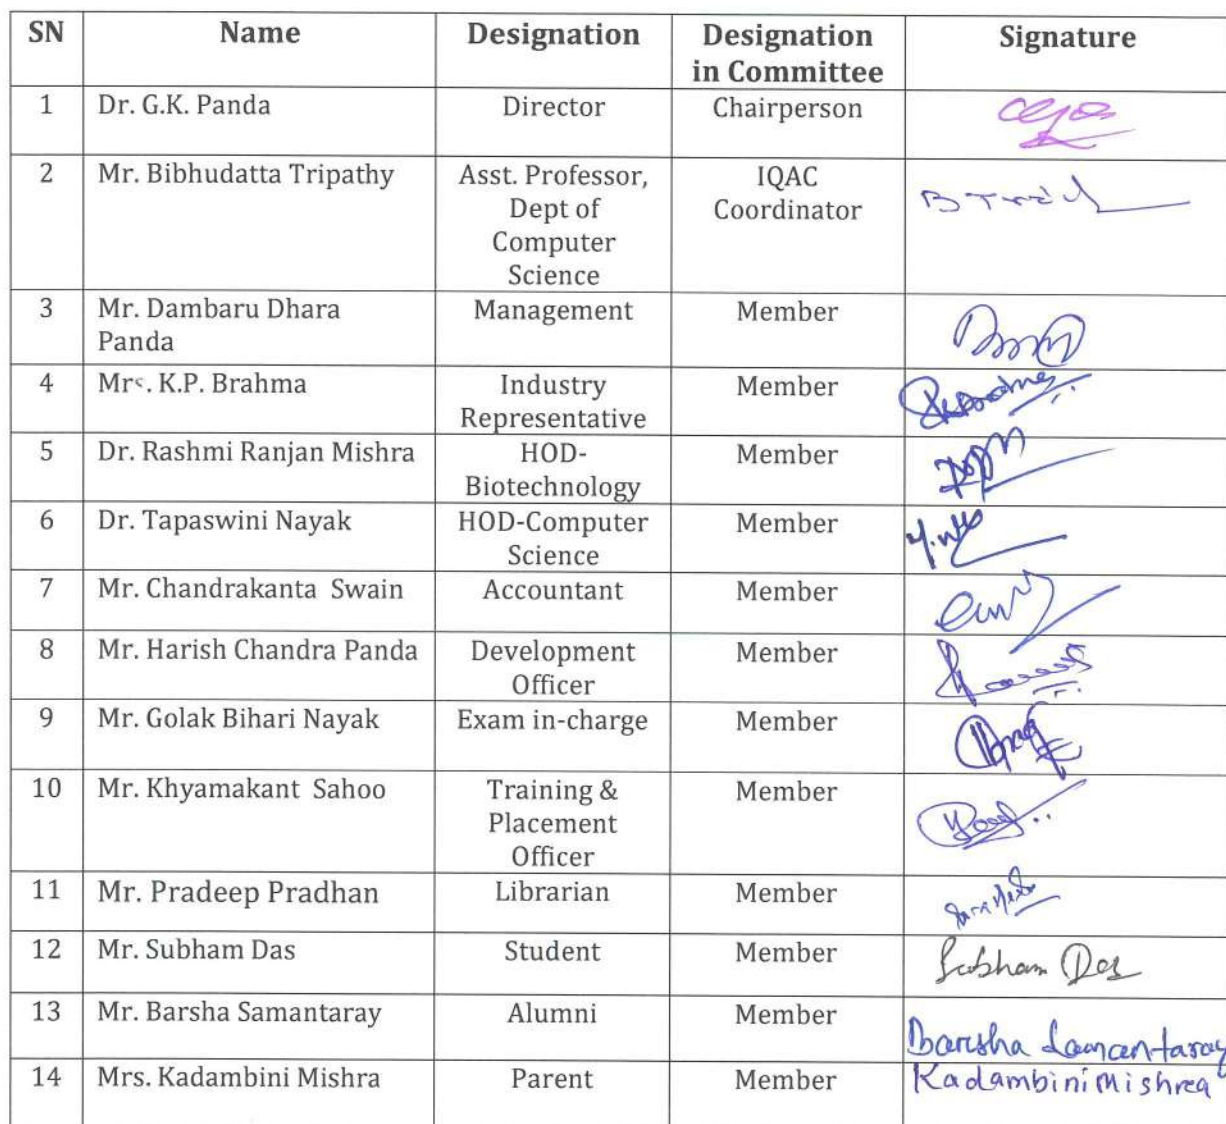 SN Name Designation Designation in Committee Signature
1 Dr. G.K. Panda Director Chairperson
2 Mr. Bibhudatta Tripathy Asst. Professor, Dept of Computer Science IQAC Coordinator
3 Mr. Dambaru Dhara Panda Management Member
4 Mrs. K.P. Brahma Industry Representative Member
5 Dr. Rashmi Ranjan Mishra HOD-Biotechnology Member
6 Dr. Tapaswini Nayak HOD-Computer Science Member
7 Mr. Chandrakanta Swain Accountant Member
8 Mr. Harish Chandra Panda Development Officer Member
9 Mr. Golak Bihari Nayak Exam in-charge Member
10 Mr. Khyamakant Sahoo Training & Placement Officer Member
11 Mr. Pradeep Pradhan Librarian Member
12 Mr. Subham Das Student Member Subham Das
13 Mr. Barsha Samantaray Alumni Member Barsha Samantaray
14 Mrs. Kadambini Mishra Parent Member Kadambini Mishra